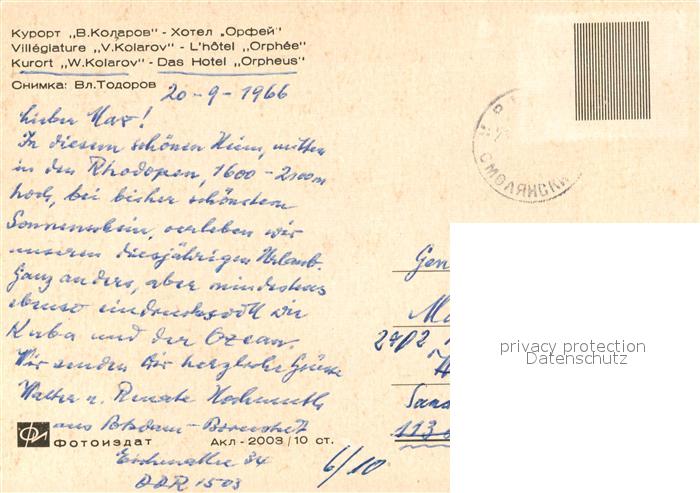 Курорт „В.Коларов" - Хотел „Орфей"
Villégiature „V.Kolarov" - L'hôtel „Orphée"
Kurort „W.Kolarov" - Das Hotel „Orpheus"
Снимка: Вл.Тодоров
20-9-1966
Lieber Max!
In diesem schönen Heim, mitten
in den Rhodopen, 1600-2100m
hoch, bei bisher schönstem
Sonnenschein, verleben wir
unseren diesjährigen Urlaub.
Ganz anders, aber mindestens
ebenso eindrucksvoll wie
Kuba und der Ozean.
Wir senden Dir herzliche Grüsse
Walter u. Renate
aus Potsdam-Bornstedt
34
DDR 1503
Фотоиздат
Акл-2003/10 ст.
6/10
СМОЛЯНСКИ
Gen
Ma
2702
113
privacy protection
Datenschutz